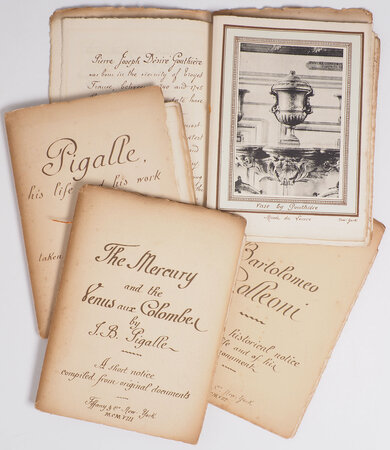 Pierre Joseph Désiré Gouthière
was born in the vicinity of Troyes
France, between
and 1745
here
Vase by Gouthière
Musée du Louvre
New York
Pigalle,
his life and his work
taken
The Mercury
and the
Venus aux Colombes
by
J. B. Pigalle
A short notice
compiled from original documents
Tiffany & Co New York
MCMVIII
Bartolomeo
Colleoni
historical notice
life and of his
monument
New York